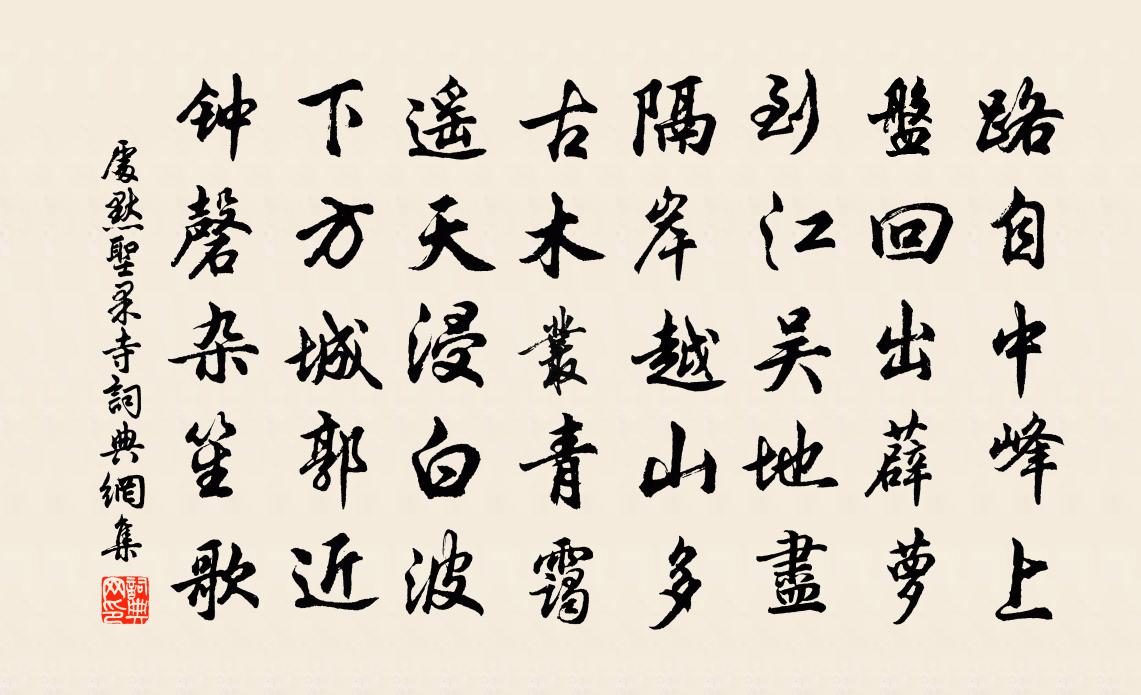 路自中峰上
盤回出薜萝
到江吴地盡
隔岸越山多
古木叢青靄
遥天浸白波
下方城郭近
钟磬杂笙歌
處默聖果寺詞典網集
詞典网印